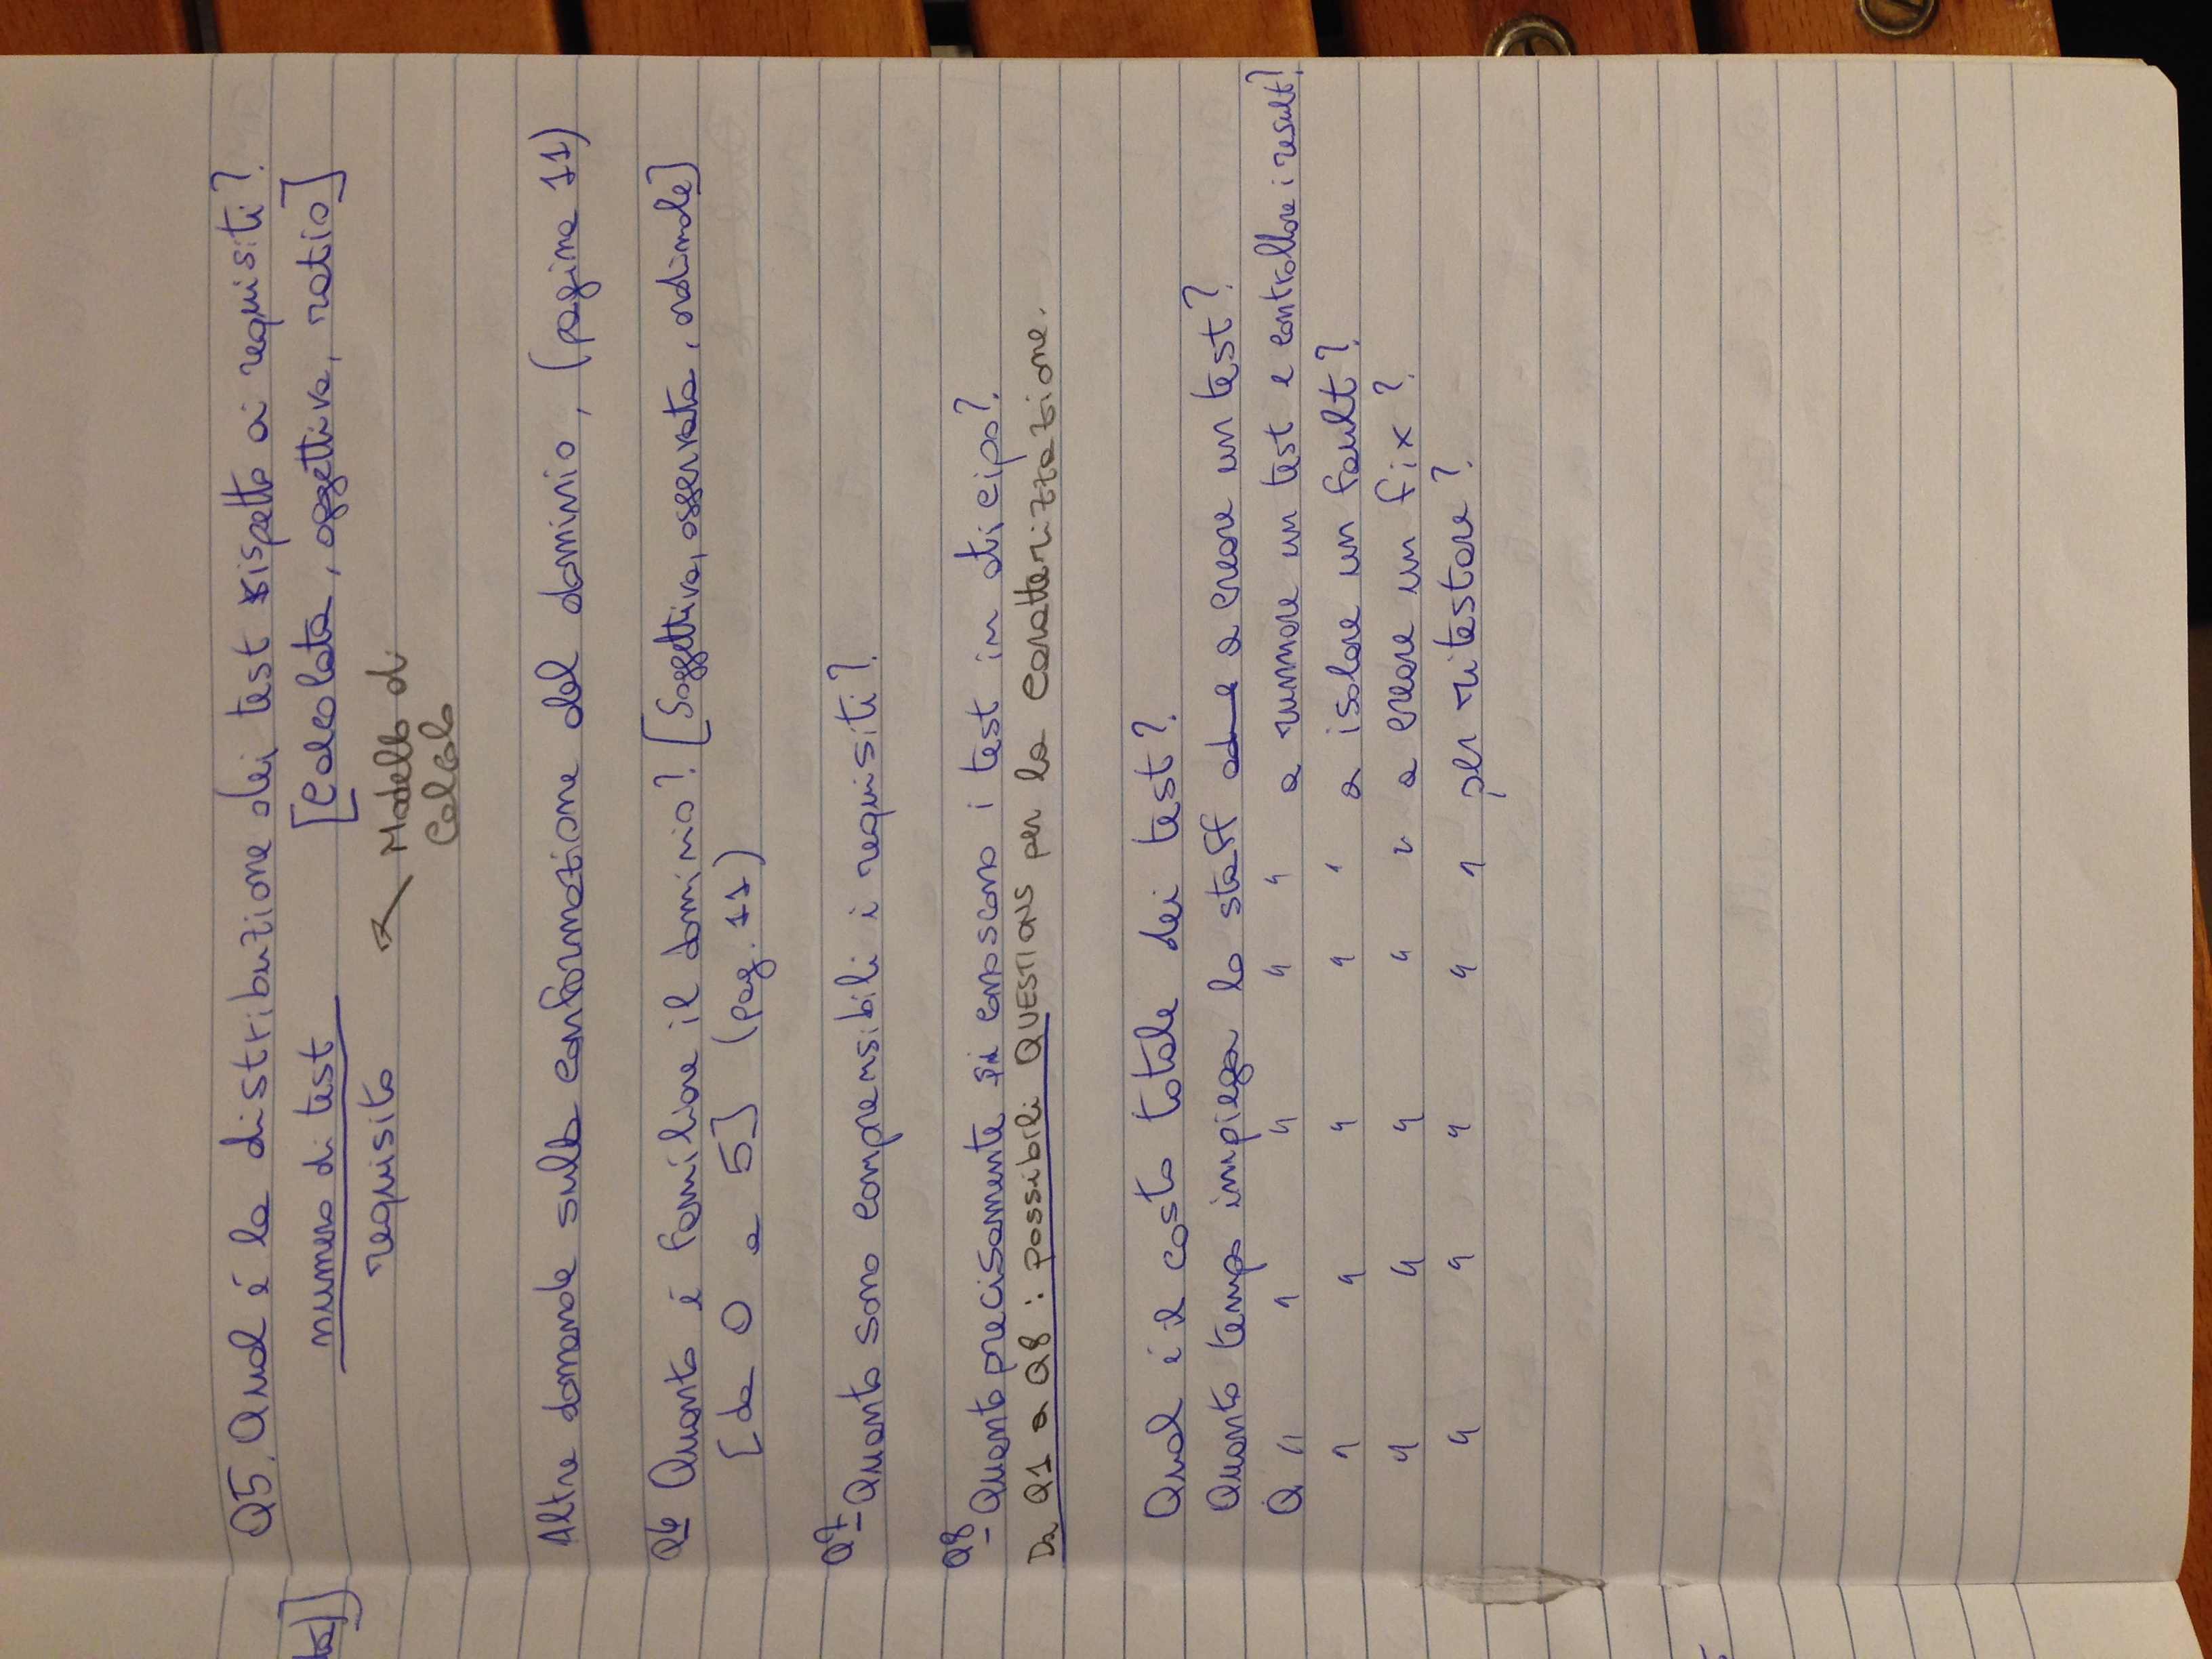 Q5. Qual é la distribuzione dei test rispetto ai requisiti?
ta)]
numero di test [Calcolata, oggettiva, ratio]
requisito
Modello di
Calcolo
Altre domande sulla conformazione del dominio, (pagina 11)
Q6 Quanto é familiare il dominio? [Soggettiva, osservata, ordinale]
[da 0 a 5] (pag. 11)
Q7 Quanto sono comprensibili i requisiti?
Q8 Quanto precisamente si conoscono i test in aticipo?
Da Q1 a Q8: possibili QUESTIONS per la caratterizzazione.
Qual é il costo totale dei test?
Quanto tempo impiega lo staff a creare un test?
Q " " " " " a runnare un test e controllare i result?
" " " " " a isolare un fault?
" " " " " a creare un fix?
" " " " " per ritestare?